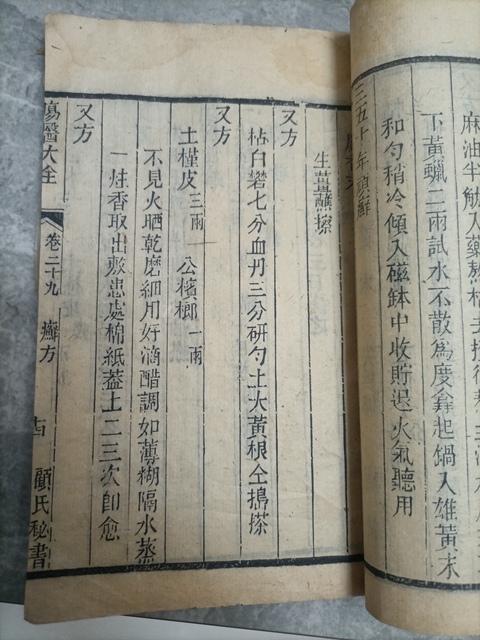 麻油半觔入藥熬枯去
下黃蠟二兩試水不散為度離起鍋入雄黃末
和勻稍冷傾入磁鉢中收貯退火氣聽用
三五十年頑癬
生薑蘸擦
又方
枯白礬七分血丹三分研勻土大黃根仝搗搽
又方
土槿皮三兩 公檳榔一兩
不見火晒乾磨細用好滴醋調如薄糊隔水蒸
一炷香取出敷患處棉紙蓋上二三次即愈
又方
瘍醫大全
卷二十九 癬方
顧氏秘書